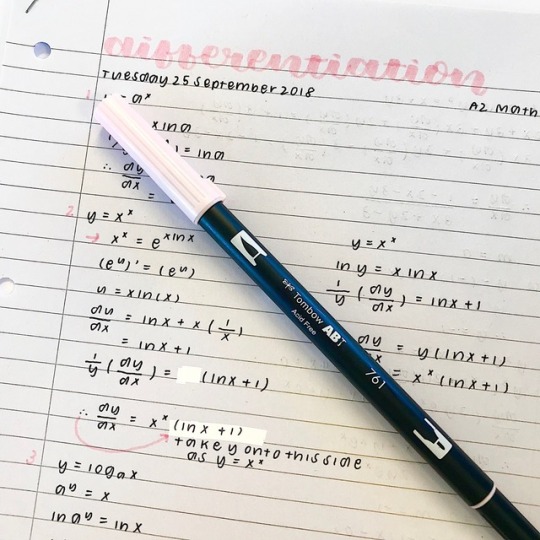 differentiation
Tuesday 25 September 2018
A2 Math
1
= aˣ
x ln a
= ln a
∴ dy/dx
=
2
y = xˣ
→ xˣ = e^(x ln x)
(eᵘ)' = (eᵘ)
u = x ln(x)
dy/dx = ln x + x (1/x)
= ln x + 1
1/y (dy/dx) = (ln x + 1)
∴ dy/dx = xˣ (ln x + 1)
take y onto this side
as y = xˣ
y = xˣ
ln y = x ln x
1/y (dy/dx) = ln x + 1
dy/dx = y (ln x + 1)
= xˣ (ln x + 1)
3
y = logₐx
aʸ = x
ln aʸ = ln x
Tombow ABT
Acid Free
761